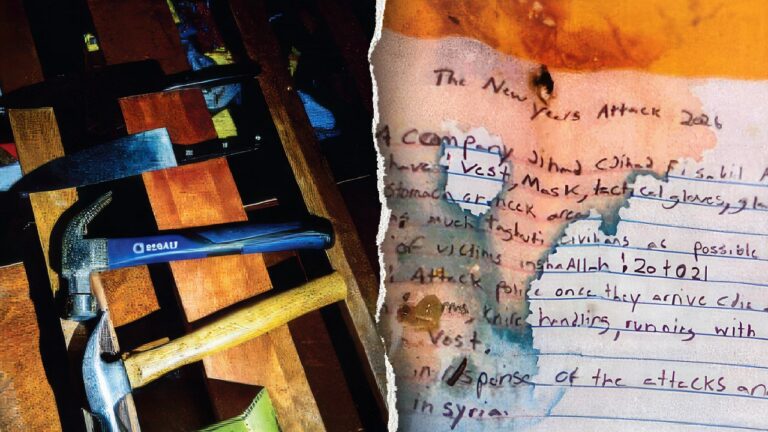 The New Years Attack 2026
A company Jihad (Jihad fisabil
have: Vest, Mask, tactical gloves,
stomach or neck area
much taghuti civilians as possible
of victims inshaAllah: 20 to 21
Attack police once they arrive (die
handling, running with
Vest.
in response of the attacks
in syria.